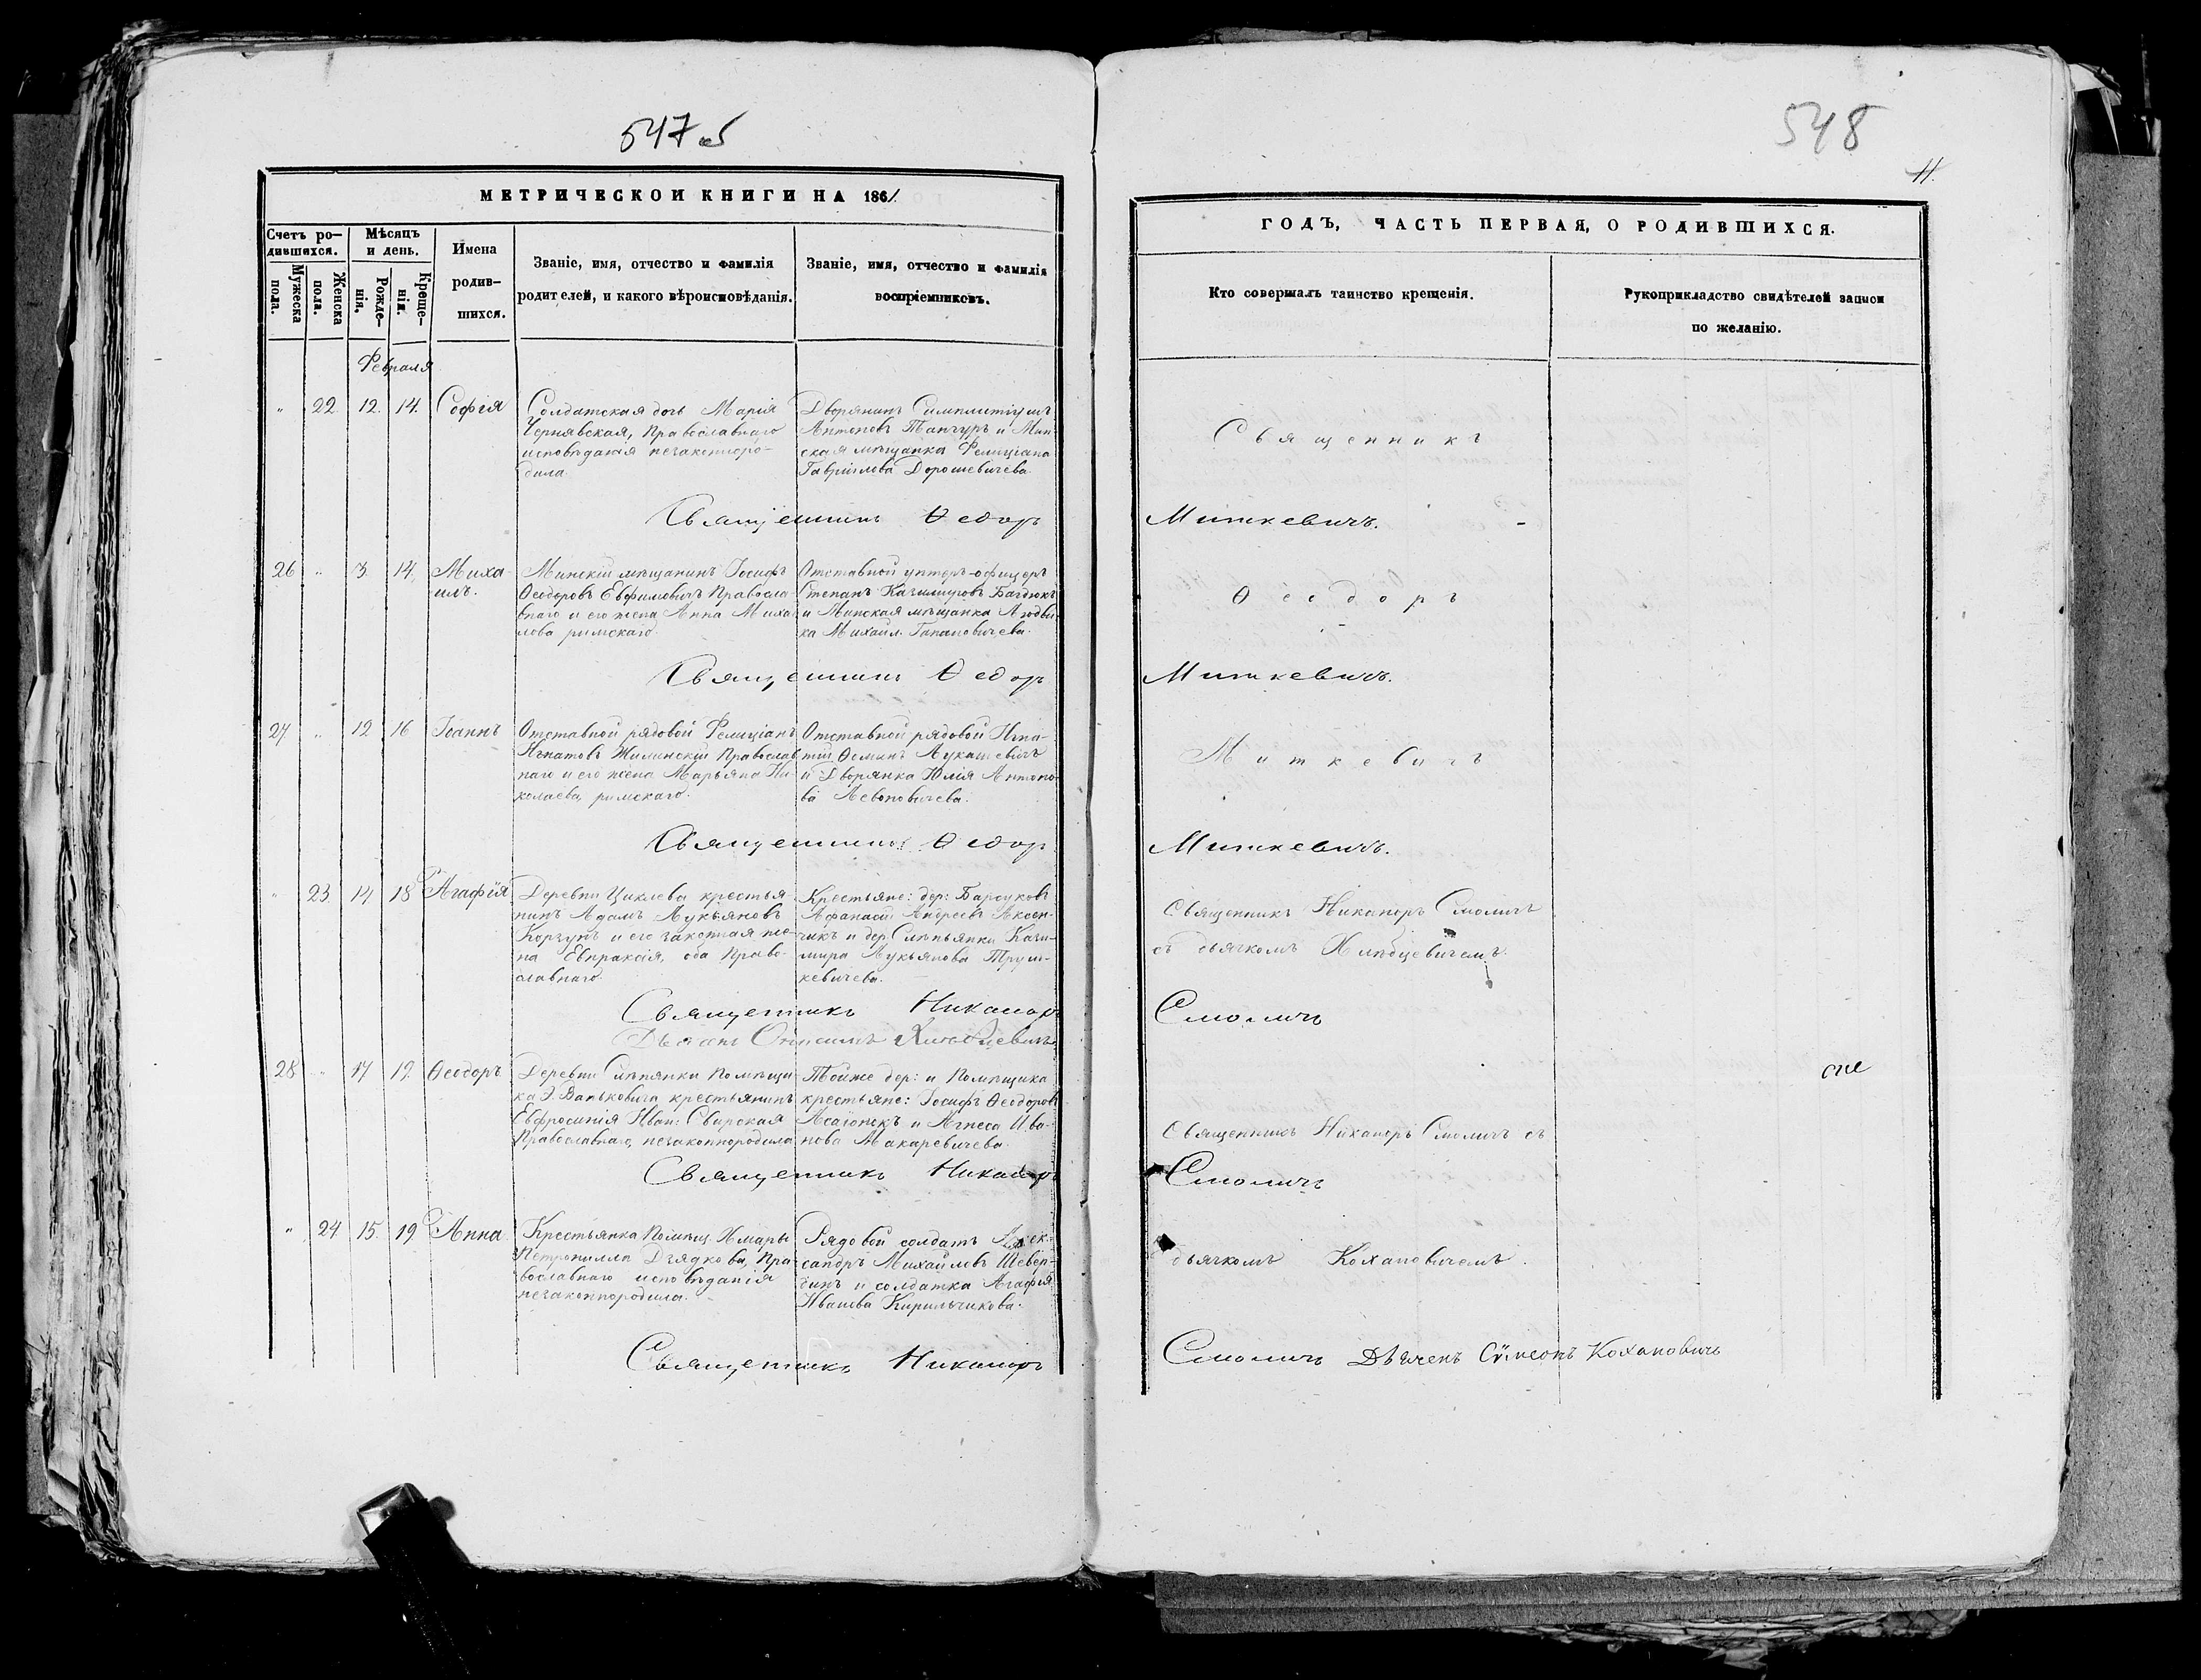 547 об
548
11.
МЕТРИЧЕСКОЙ КНИГИ НА 1861
ГОДЪ, ЧАСТЬ ПЕРВАЯ, О РОДИВШИХСЯ.
Счетъ ро-
дившихся.
Мужеска
пола.
Женска
пола.
Мѣсяцъ
и день.
Рожде-
нія.
Креще-
нія.
Имена
родив-
шихся.
Званіе, имя, отчество и фамилія
родителей, и какого вѣроисповѣданія.
Званіе, имя, отчество и фамилія
воспріемниковъ.
Кто совершалъ таинство крещенія.
Рукоприкладство свидѣтелей записи
по желанію.
Февраля
" 22. 12. 14. Софія
Солдатская дочь Марія
Чернявская, Православнаго
исповѣданія незаконноро-
дила
Дворянинъ
Антоновъ Танчуръ и Мин-
ская мѣщанка Фелиціана
Гавріилова Дорошевичева.
Священникъ
Священникъ Ѳедоръ
Миткевичъ.
26 " 3. 14. Миха-
илъ.
Минскій мѣщанинъ Іосифъ
Ѳеодоровъ Евфимовичъ Правосла-
внаго и его жена Анна Михай-
лова римскаго.
Отставной унтеръ-офицеръ
Степанъ Казимировъ Багдюкъ
и Минская мѣщанка Людви-
ка Михайл. Гапановичева.
Ѳеодоръ
Священникъ Ѳедоръ
Миткевичъ.
27 " 12 16 Іоаннъ
Отставной рядовой Фелиціанъ
Игнатовъ Жилинскій Православ-
наго и его жена Марьяна Ни-
колаева, римскаго.
Отставной рядовой Игна-
тій Лукашевичъ
и Дворянка Юлія Антоно-
ва Левоновичева.
Миткевичъ
Священникъ Ѳедоръ
Миткевичъ.
" 23 14 18 Агафія
Деревни Цнклева крестья-
нинъ Адамъ Лукьяновъ
Корзунъ и его законная же-
на Евпраксія, оба Право-
славнаго.
Крестьяне: дер: Барсуковъ
Афанасій Андреевъ Аксен-
чикъ и дер. Слѣпянки Кази-
мира Лукьянова Труш-
кевичева.
Священникъ Никаноръ Смоличъ
съ дьячкомъ Хлѣбцевичемъ.
Священникъ Никаноръ
Смоличъ
Дьячокъ Онисимъ Хлѣбцевичъ
28 " 17 19. Ѳеодоръ
Деревни Слѣпянки Помѣщи-
ка Э. Ваньковича крестьянинъ
Евфросинія Иван: Свирская
Православнаго, незаконнородила
Тойже дер: и Помѣщика
крестьяне: Іосифъ Ѳеодоровъ
Асаіонокъ и Агнеса Ива-
нова Макаревичева.
Священникъ Никаноръ Смоличъ съ
Священникъ Никаноръ
Смоличъ
" 24 15. 19 Анна
Крестьянка Помѣщ. Хмары
Петронилла Дзядкова, Пра-
вославнаго исповѣданія
незаконнородила.
Рядовой солдатъ Алек-
сандръ Михайловъ Шевер-
динъ и солдатка Агафія
Иванова Кирильчикова.
дьячкомъ Кохановичемъ.
Священникъ Никаноръ
Смоличъ Дьячекъ Сѵмеонъ Кохановичъ